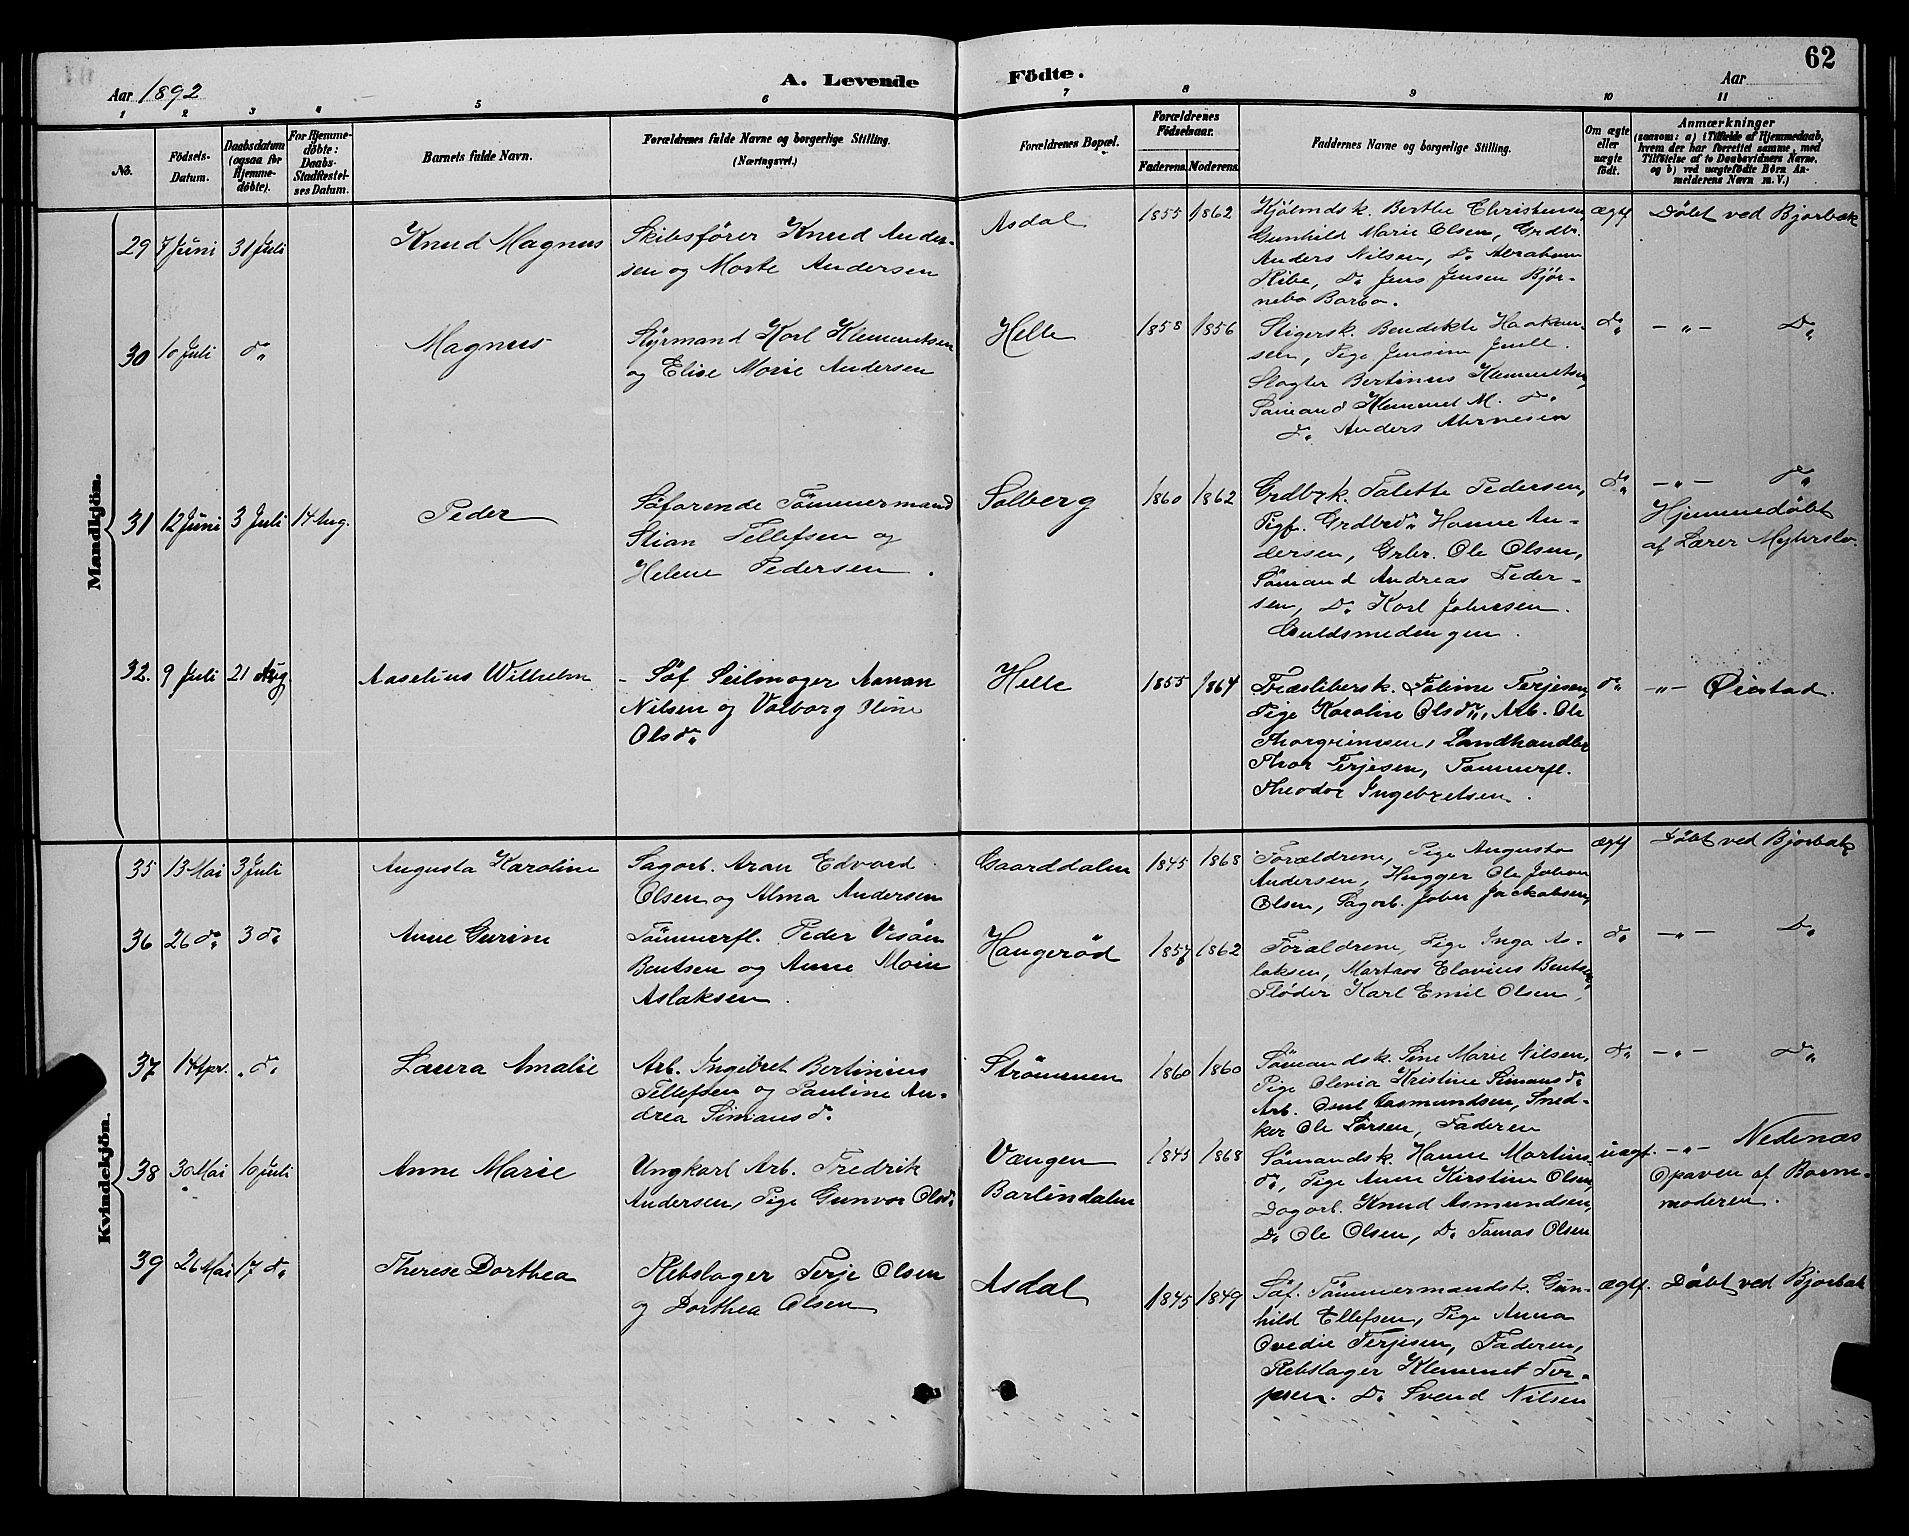 62
Aar 1892
A. Levende
Födte.
Aar
1 2 3 4 5 6 7 8 9 10 11
No.
Födsels-
Datum.
Daabsdatum
(ogsaa for
Hjemme-
döbte).
For Hjemme-
döbte:
Daabs-
Stadfæstel-
ses Datum.
Barnets fulde Navn.
Forældrenes fulde Navne og borgerlige Stilling.
(Næringsvei.)
Forældrenes Bopæl.
Forældrenes
Födselsaar.
Faderens. Moderens.
Faddernes Navne og borgerlige Stilling.
Om ægte
eller
uægte
födt.
Anmærkninger
(saasom: a) i Tilfælde af Hjemmedaab,
hvem der har forrettet samme, med
Tilföielse af to Daabsvidners Navne,
og b) ved uægtefödte Börn An-
melderens Navn m. V.)
Mandkjön.
29 7 Juni 31 Juli
Knud Magnus
Skibsfører Knud Ander-
sen og Marte Andersen
Asdal
1855 1862
Kjølmdsk. Berthe Christensen
Gunhild Marie Olsen, Grdbr.
Anders Nilsen, Do Abraham
Ribe, Do Jens Jensen Bjør-
nebo Barbo.
ægtf
Døbt ved Bjorbæk
30 10 Juli do
Magnus
Styrmand Karl Klemmetsen
og Elise Marie Andersen
Helle
1858 1856
Stigersk. Bendikte Haakon-
sen, Pige Jensine Juell.
Slagter Bertinius Klemmetsen,
Sømand Klemmet M. do
do Anders
do
— " — Do
31 12 Juni 3 Juli 14 Aug.
Peder
Søfarende Tømmermand
Stian Tellefsen og
Helene Pedersen.
Solberg
1860 1862
Grdbrk. Talette Pedersen,
Pigf. Grdbrdr Hanne An-
dersen, Grbr. Ole Olsen,
Sømand Andreas Peder-
sen, Do Karl Johnsen.
Guldsmedengen.
do
— " — do
Hjemmedøbt
af Lærer
32. 9 Juli 21 Aug
Aaselius Wilhelm
- Søf Seilmager Aanan
Nilsen og Valborg Oline
Olsdr
Helle
1855 1864
Træslibersk. Taline Terjesen,
Pige Karoline Olsdr, Arb. Ole
Thorgrimsen, Landhandler
Thor Terjesen, Tømmerfl.
Theodor Ingebretsen.
do
— " — Øiestad.
Kvindekjön.
35 13 Mai 3 Juli
Augusta Karoline
Sagarb. Aran Edvard
Olsen og Alma Andersen
Gaarddalen
1845 1868
Forældrene, Pige Augusta
Andersen, Hugger Ole Johan
Olsen, Sagarb. John Jackobsen,
ægtf
Døbt ved Bjorbæk
36 26 do 3 do
Anne Gurine
Tømmerfl. Peder
Bentsen og Anne Marie
Aslaksen.
Haugerød
1857 1862
Forældrene, Pige Inga As-
laksen, Matros Elavius Bentsen,
Fløder Karl Emil Olsen,
do
— " — Do
37 14 Apr. do
Laura Amalie
Arb. Ingebret Bertinius
Tellefsen og Pauline An-
drea Simonsdr
Strømmen
1860 1860
Sømandsk. Sine Marie Nilsen,
Pige Olevia Kristine Simonsdr
Arb. Asmundsen, Sned-
ker Ole Larsen, Faderen
do
— " — do
38 30 Mai 16 Juli
Anne Marie
Ungkarl Arb. Fredrik
Andersen, Pige Gunvor Olsdr
Vængen
Barlindalen
1845 1868
Sømandsk. Hanne Martins-
dr, Pige Anne Kirstine Olsen,
Dagarb. Knud Asmundsen,
Do Ole Olsen, Do Tomas Olsen
uægt.
— " — Nedenæs
Opgaven af Barne-
moderen.
39 26 Mai 17 do
Therese Dorthea
Rebslager Terje Olsen
og Dorthea Olsen
Asdal
1845 1849
Søf. Tømmermandsk. Gun-
hild Ellefsen, Pige Anna
Ovedie Terjesen, Faderen,
Rebslager Klemmet Ter-
jesen. Do Svend Nilsen
ægtf.
Døbt ved Bjorbæk